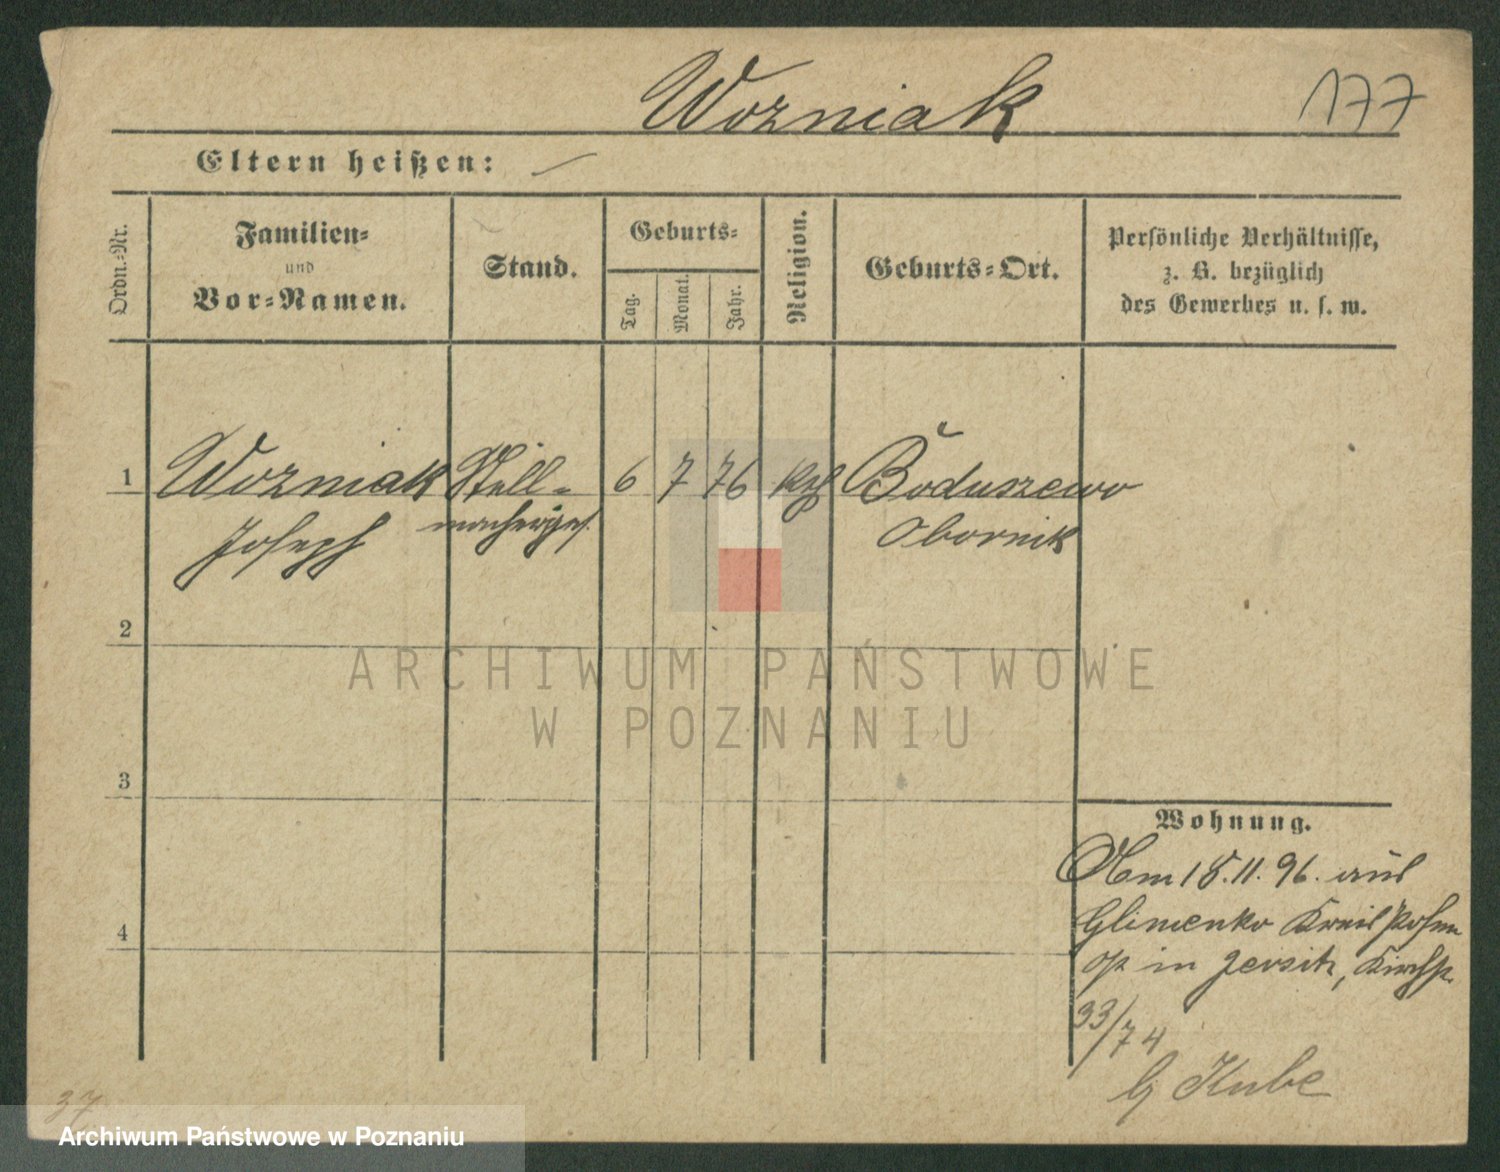 Wozniak
177
Eltern heißen: —
Ordn.-Nr.
Familien-
und
Vor-Namen.
Stand.
Geburts-
Tag.
Monat.
Jahr.
Religion.
Geburts-Ort.
Persönliche Verhältnisse,
z. B. bezüglich
des Gewerbes u. s. w.
1
Wozniak
Joseph
Stell-
macherges.
6 7 76
kth
Boduszewo
Obornik
2
3
4
ARCHIWUM PAŃSTWOWE
W POZNANIU
Wohnung.
Am 15.11.96. aus
Glinienko Kreis Posen
in Jersitz, Kirchst.
33/74
b Kube
37
Archiwum Państwowe w Poznaniu